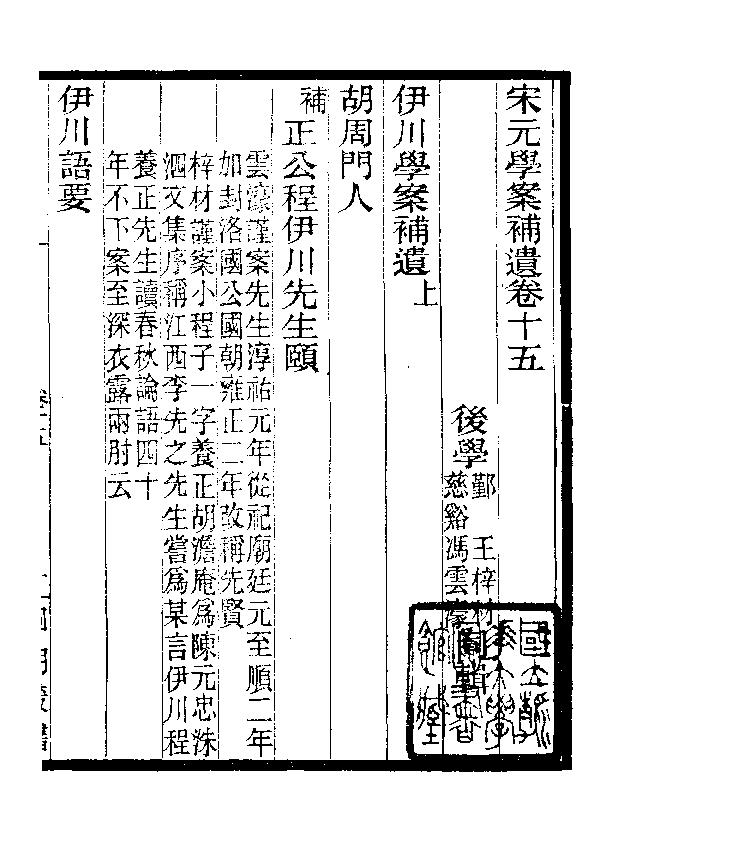 宋元學案補遺卷十五
後學
鄞　王梓材
慈谿馮雲濠
同輯
伊川學案補遺上
胡周門人
補正公程伊川先生頤
雲濠謹案先生淳祐元年從祀廟廷元至順二年
加封洛國公國朝雍正二年改稱先賢
梓材謹案小程子一字養正胡澹庵爲陳元忠洙
泗文集序稱江西李先之先生嘗爲某言伊川程
養正先生讀春秋論語四十
年不下案至深衣露兩肘云
伊川語要
卷十五
一四明叢書